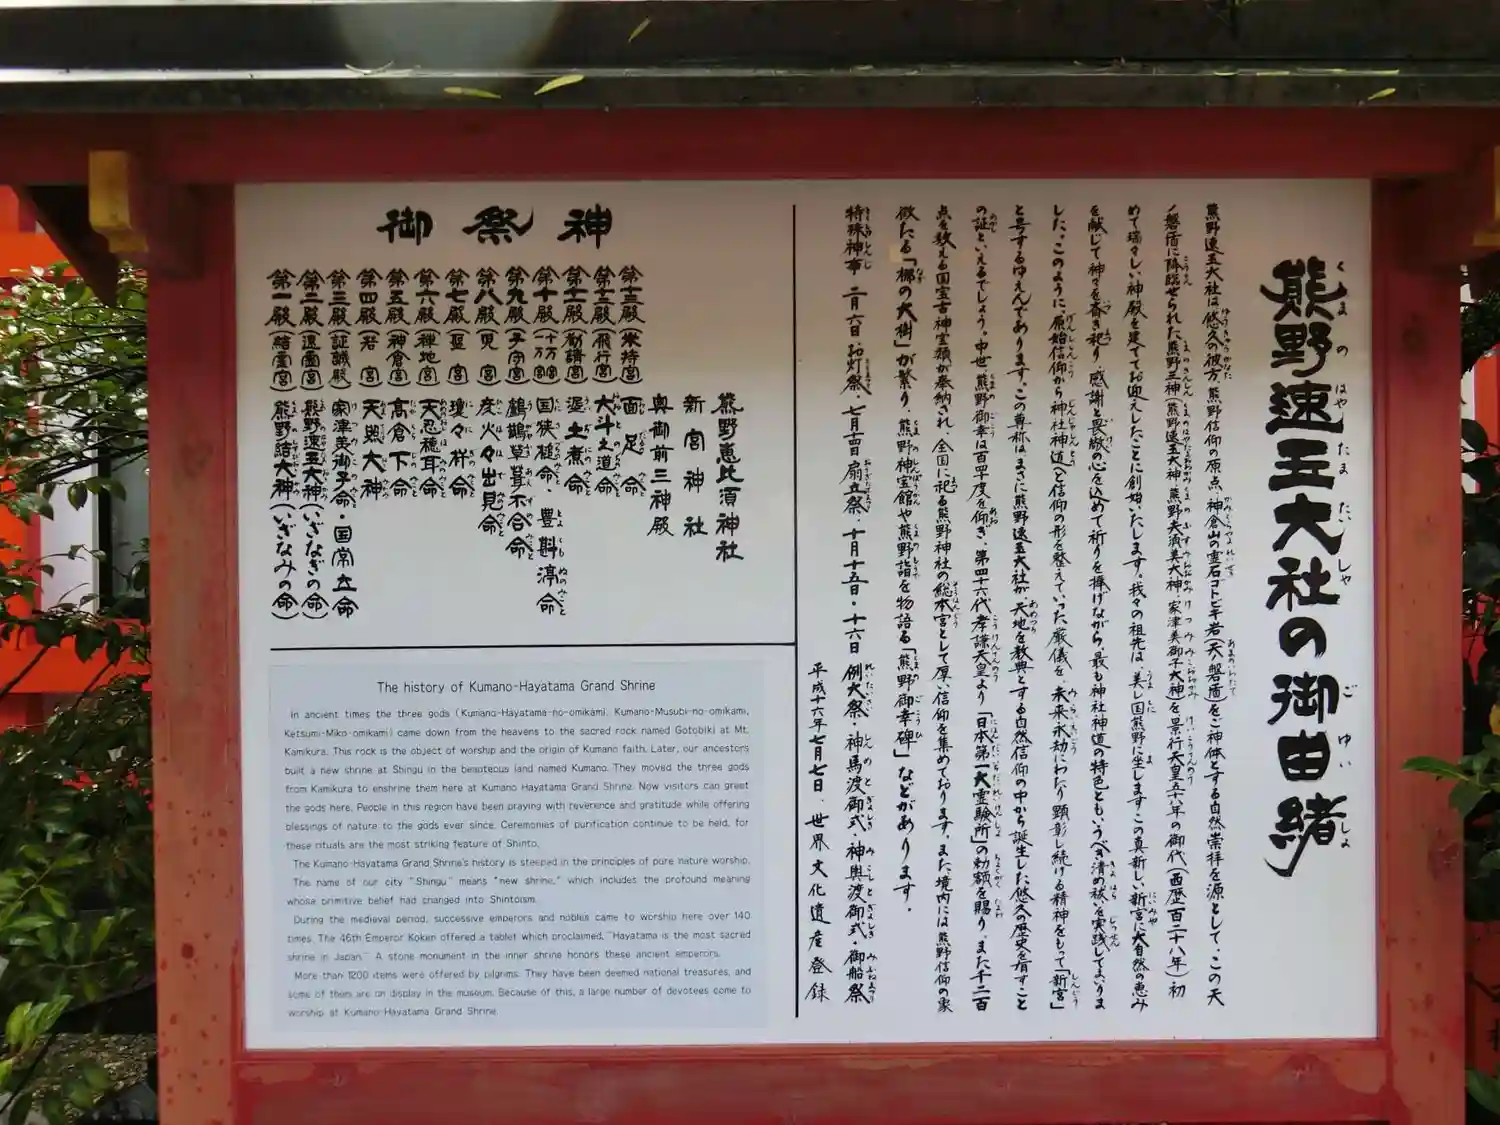 熊野速玉大社の御由緒
熊野速玉大社は悠久の彼方、熊野信仰の原点、神倉山の霊石ゴトビキ岩(天ノ磐盾)をご神体とする自然崇拝を源として、この天
ノ磐盾に降臨せられた熊野三神(熊野速玉大神・熊野夫須美大神・家津美御子大神)を景行天皇五十八年の御代(西歴百二十八年)初
めて瑞々しい神殿を建ててお迎えしたことに創始いたします。我々の祖先は、美し国熊野に坐しますこの真新しい新宮に大自然の恵み
を献じて神々を斎き祀り、感謝と畏敬の心を込めて祈りを捧げながら、最も神社神道の特色ともいうべき清め祓いを実践してまいりま
した。このように原始信仰から神社神道へと信仰の形を整えていった厳儀を、未来永劫にわたり顕彰し続ける精神をもって「新宮」
と号するゆえんであります。この尊称はまさに熊野速玉大社が、天地を教典とする自然信仰の中から誕生した悠久の歴史を有すこと
の証といえるでしょう。中世、熊野御幸は百四十度を仰ぎ、第四十六代孝謙天皇より「日本第一大霊験所」の勅額を賜り、また千二百
点を数える国宝古神宝類が奉納され、全国に祀る熊野神社の総本宮として厚い信仰を集めております。また境内には熊野信仰の象
徴たる「梛の大樹」が繁り、熊野神宝館や熊野詣を物語る「熊野御幸碑」などがあります。
特殊神事 二月六日 お灯祭・七月十四日 扇立祭・十月十五日・十六日 例大祭・神馬渡御式・神輿渡御式・御船祭
平成十六年七月七日 世界文化遺産登録
御祭神
第一殿(結霊宮)熊野結大神(いざなみの命)
第二殿(速霊宮)熊野速玉大神(いざなぎの命)
第三殿(証誠殿)家津美御子命・国常立命
第四殿(若宮)天照大神
第五殿(神倉宮)高倉下命
第六殿(禅地宮)天忍穂耳命
第七殿(聖宮)瓊々杵命
第八殿(児宮)彦火々出見命
第九殿(子守宮)鸕鶿草葺不合命
第十殿(一万宮 十万宮)国狭槌命・豊斟渟命
第十一殿(勧請宮)泥土煮命
第十二殿(飛行宮)大斗之道命
第十三殿(米持宮)面足命
奥御前三神殿
新宮神社
熊野恵比須神社
The history of Kumano-Hayatama Grand Shrine
In ancient times the three gods (Kumano-Hayatama-no-omikami, Kumano-Musubi-no-omikami,
Ketsumi-Miko-omikami) came down from the heavens to the sacred rock named Gotobiki at Mt.
Kamikura. This rock is the object of worship and the origin of Kumano faith. Later, our ancestors
built a new shrine at Shingu in the beauteous land named Kumano. They moved the three gods
from Kamikura to enshrine them here at Kumano Hayatama Grand Shrine. Now visitors can greet
the gods here. People in this region have been praying with reverence and gratitude while offering
blessings of nature to the gods ever since. Ceremonies of purification continue to be held, for
these rituals are the most striking feature of Shinto.
The Kumano-Hayatama Grand Shrine's history is steeped in the principles of pure nature worship.
The name of our city "Shingu" means "new shrine," which includes the profound meaning
whose primitive belief had changed into Shintoism.
During the medieval period, successive emperors and nobles came to worship here over 140
times. The 46th Emperor Koken offered a tablet which proclaimed, "Hayatama is the most sacred
shrine in Japan." A stone monument in the inner shrine honors these ancient emperors.
More than 1200 items were offered by pilgrims. They have been deemed national treasures, and
some of them are on display in the museum. Because of this, a large number of devotees come to
worship at Kumano Hayatama Grand Shrine.